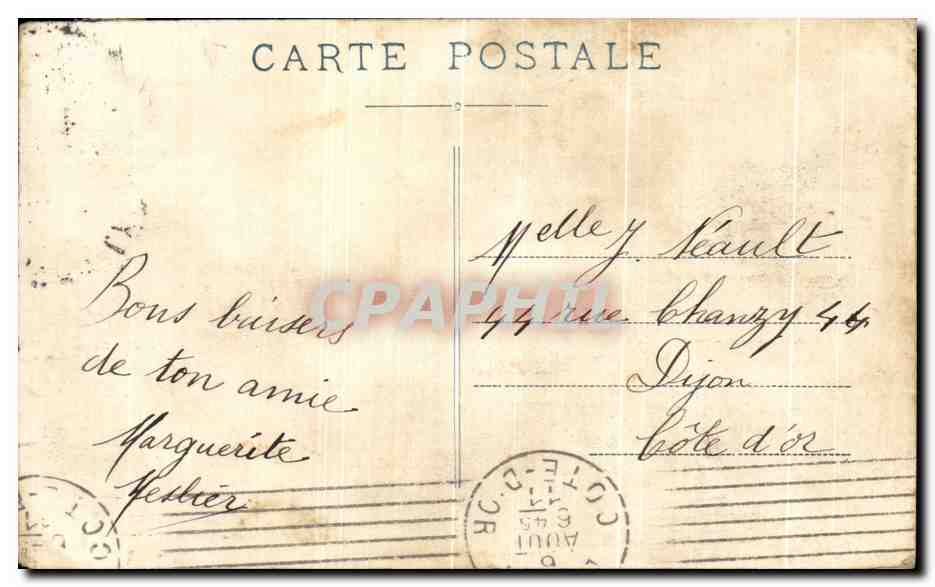 CARTE POSTALE
Bons baisers
de ton amie
Marguerite
Meslier
Melle J. Néault
44 rue Chanzy 44
Dijon
Côte d'or
CPAPHIL
COTE-D'OR
6 45
AOUT